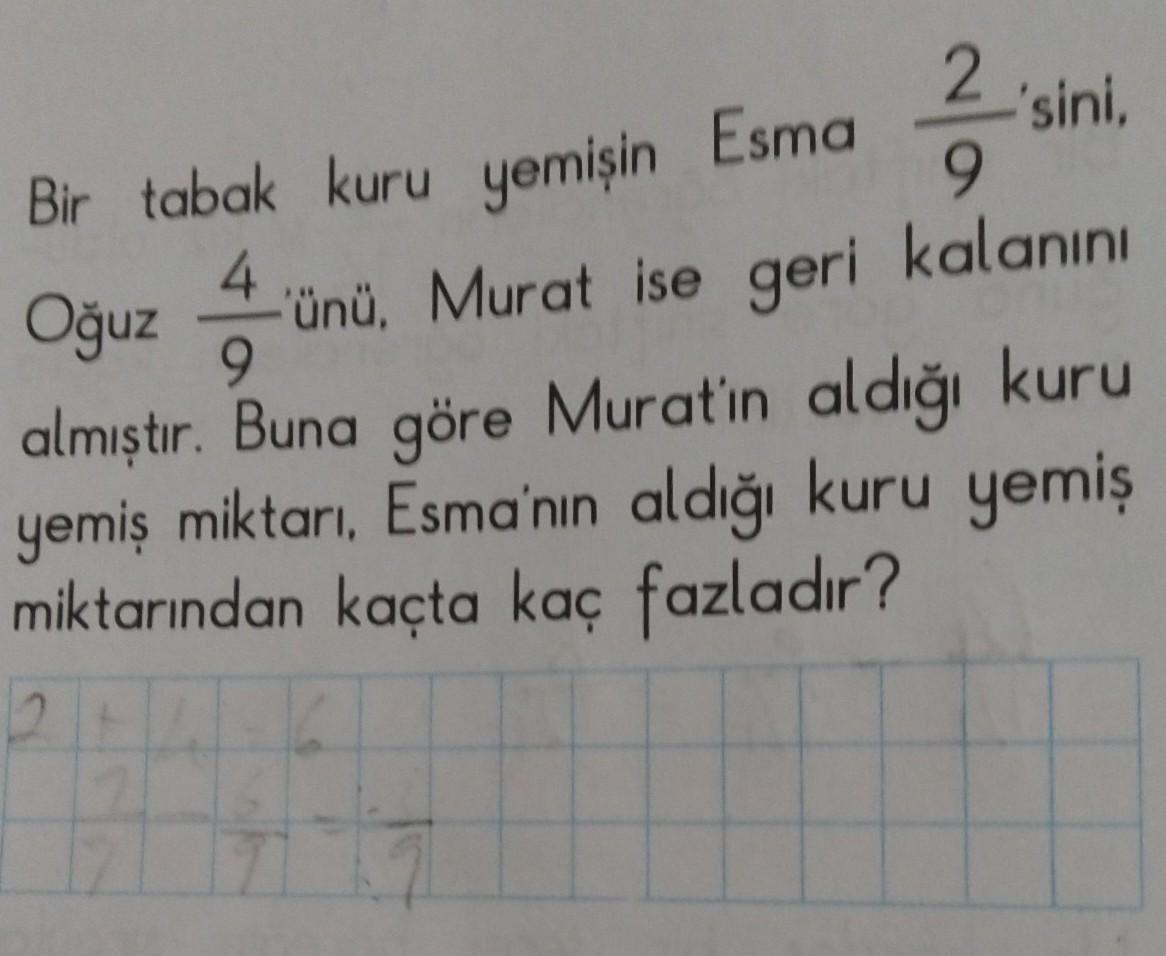 Bir tabak kuru yemişin Esma 2/9 'sini,
Oğuz 4/9 'ünü, Murat ise geri kalanını
almıştır. Buna göre Murat'ın aldığı kuru
yemiş miktarı, Esma'nın aldığı kuru yemiş
miktarından kaçta kaç fazladır?
2 + 4 = 6